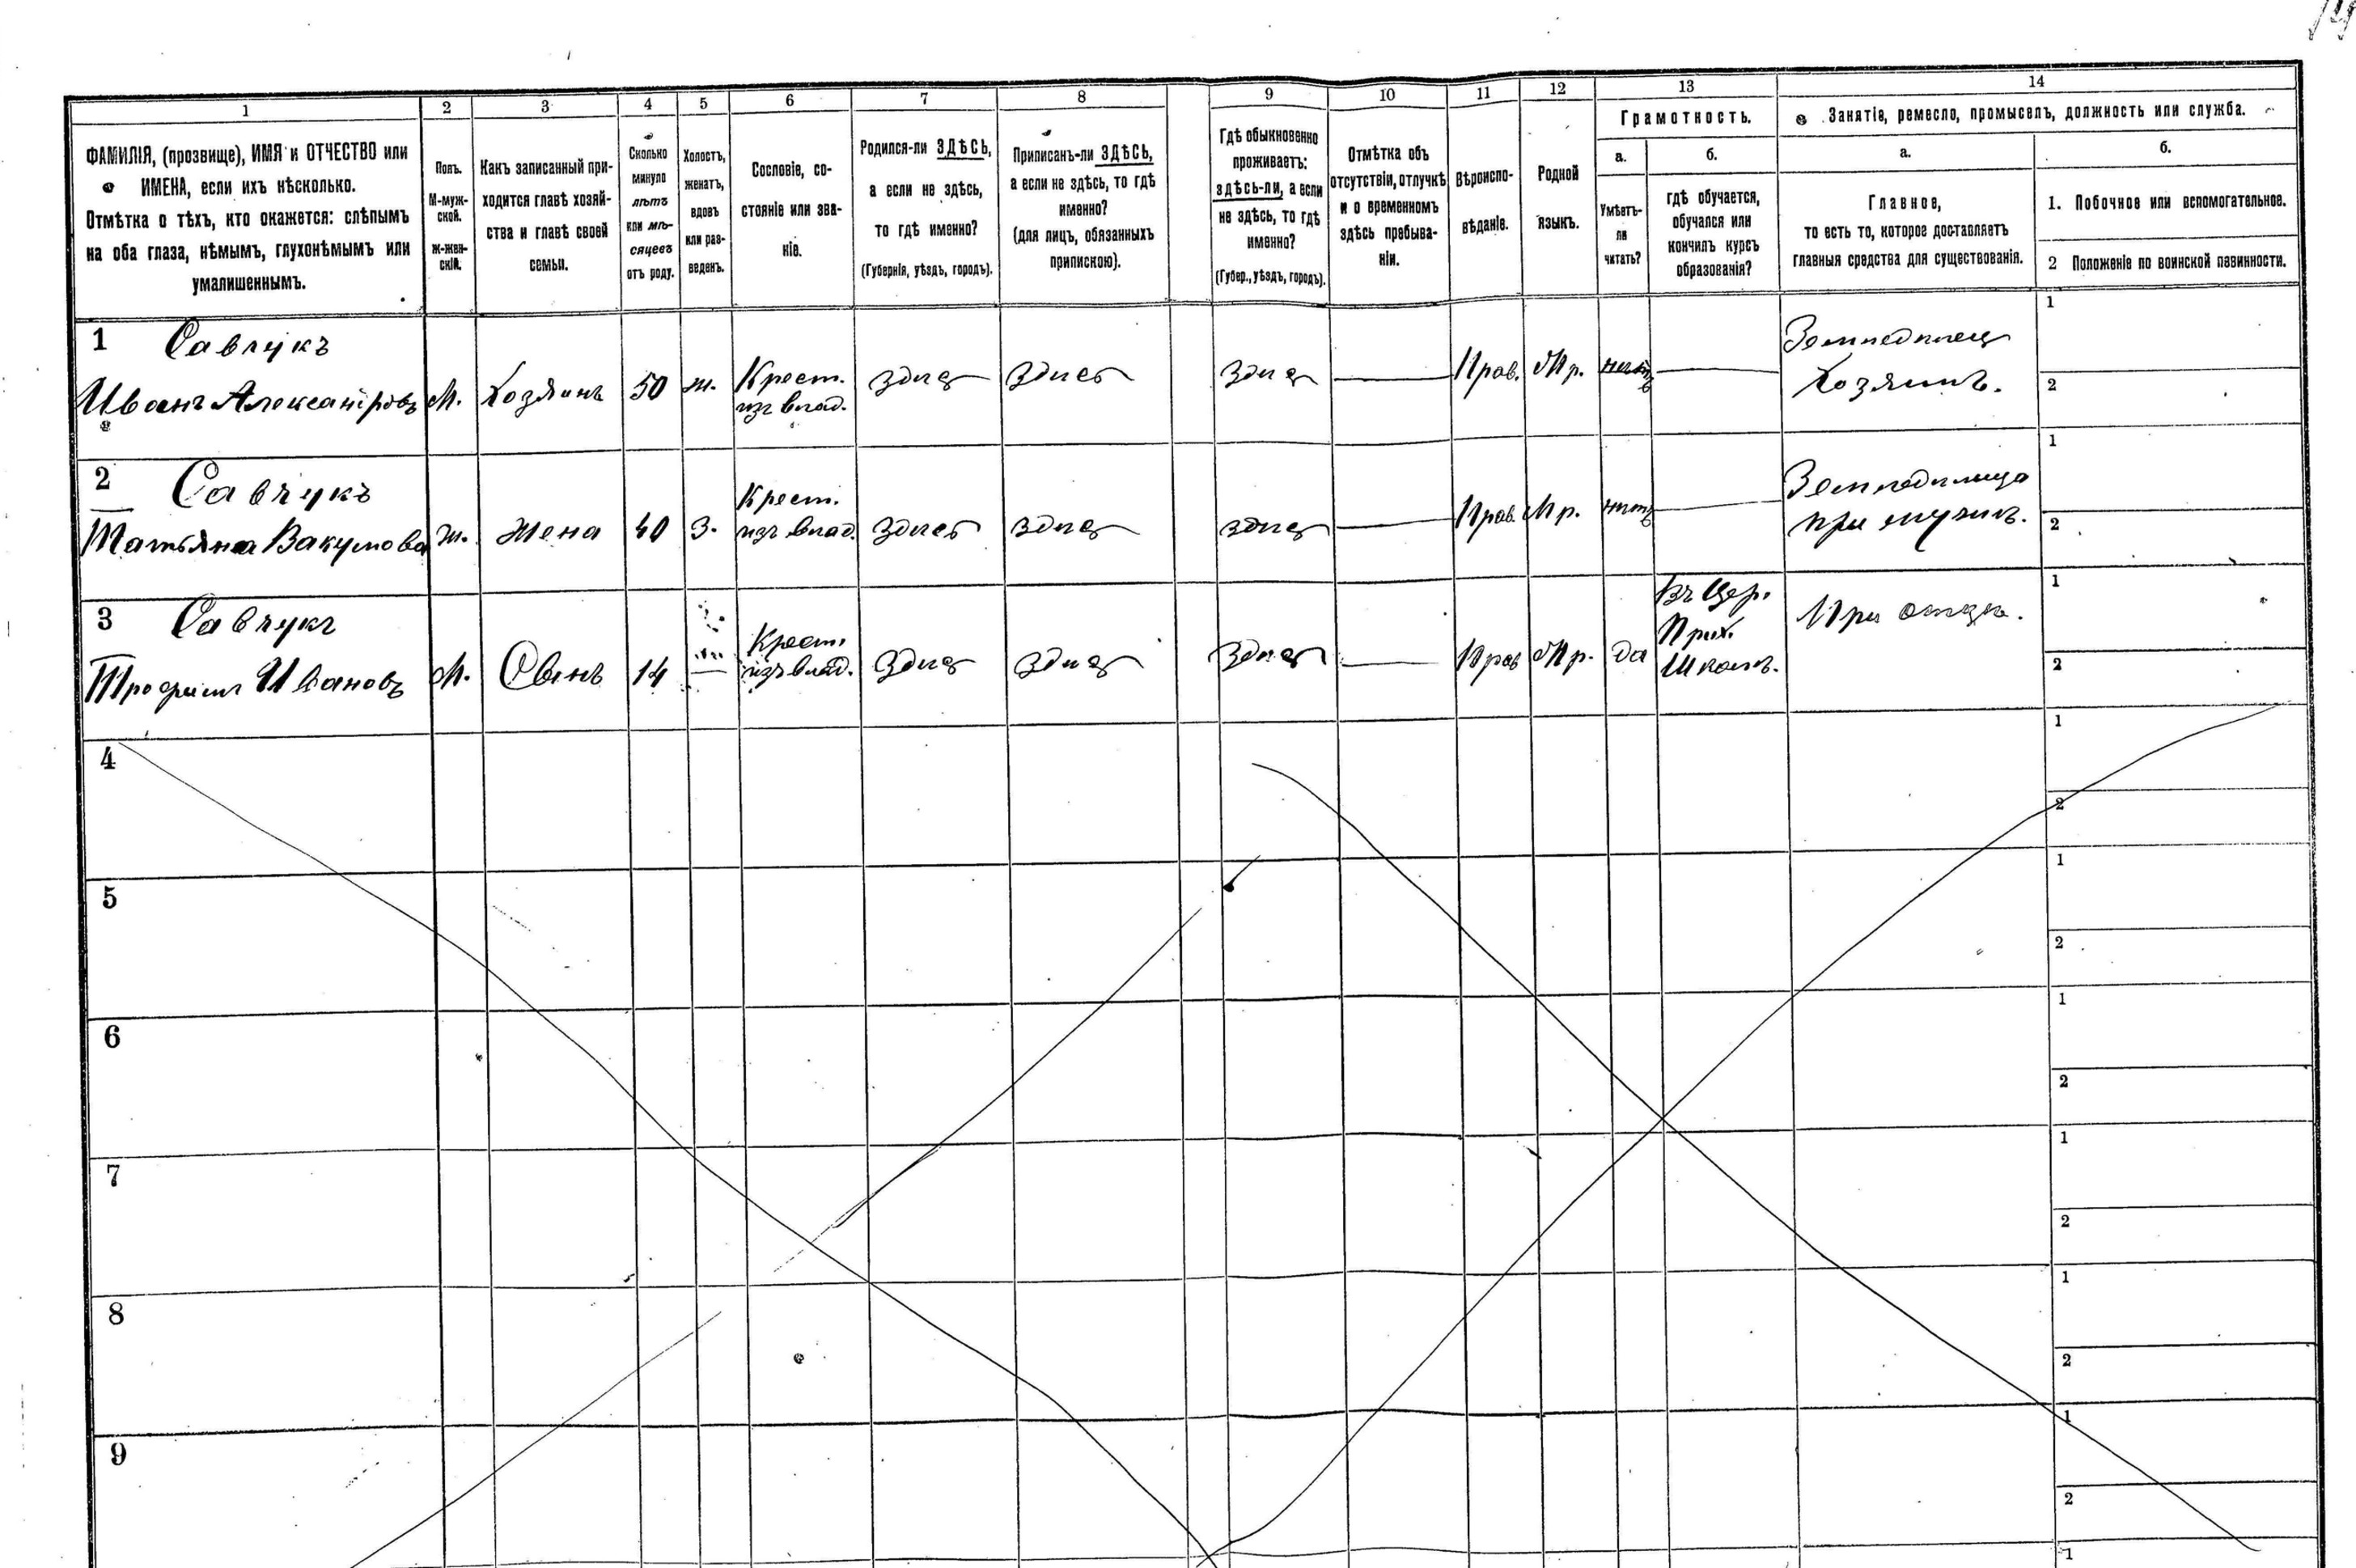 1 2 3 4 5 6 7 8 9 10 11 12 13 14
ФАМИЛІЯ, (прозвище), ИМЯ и ОТЧЕСТВО или
ИМЕНА, если ихъ нѣсколько.
Отмѣтка о тѣхъ, кто окажется: слѣпымъ
на оба глаза, нѣмымъ, глухонѣмымъ или
умалишеннымъ.
Полъ.
М-муж-
ской.
Ж-жен-
скій.
Какъ записанный при-
ходится главѣ хозяй-
ства и главѣ своей
семьи.
Сколько
минуло
лѣтъ
или мѣ-
сяцевъ
отъ роду.
Холостъ,
женатъ,
вдовъ
или раз-
веденъ.
Сословіе, со-
стояніе или зва-
ніе.
Родился-ли ЗДѢСЬ,
а если не здѣсь,
то гдѣ именно?
(Губернія, уѣздъ, городъ).
Приписанъ-ли ЗДѢСЬ,
а если не здѣсь, то гдѣ
именно?
(для лицъ, обязанныхъ
припискою).
Гдѣ обыкновенно
проживаетъ:
здѣсь-ли, а если
не здѣсь, то гдѣ
именно?
(Губер., уѣздъ, городъ).
Отмѣтка объ
отсутствіи, отлучкѣ
и о временномъ
здѣсь пребыва-
ніи.
Вѣроиспо-
вѣданіе.
Родной
языкъ.
Грамотность.
а.
Умѣетъ-
ли
читать?
б.
гдѣ обучается,
обучался или
кончилъ курсъ
образованія?
Занятіе, ремесло, промыселъ, должность или служба.
а.
Главное,
то есть то, которое доставляетъ
главныя средства для существованія.
б.
1. Побочное или вспомогательное.
2 Положеніе по воинской повинности.
1 Савчукъ
Иванъ Александровъ
М.
Хозяинъ
50
ж.
Крест.
изъ влад.
здѣсь
здѣсь
здѣсь
Прав.
Мр.
нѣтъ
Земледѣлецъ
Хозяинъ.
1
2
2 Савчукъ
Татьяна Вакумова
ж.
Жена
40
З.
Крест.
изъ влад.
здѣсь
здѣсь
здѣсь
Прав.
Мр.
нѣтъ
Земледѣлица
при мужѣ.
1
2
3 Савчукъ
Трофимъ Ивановъ
М.
Сынъ
14
Крест.
изъ влад.
здѣсь
здѣсь
здѣсь
Прав
Мр.
да
Въ Цер.
Прих.
Школѣ.
При отцѣ.
1
2
4
1
2
5
1
2
6
1
2
7
1
2
8
1
2
9
1
2
1